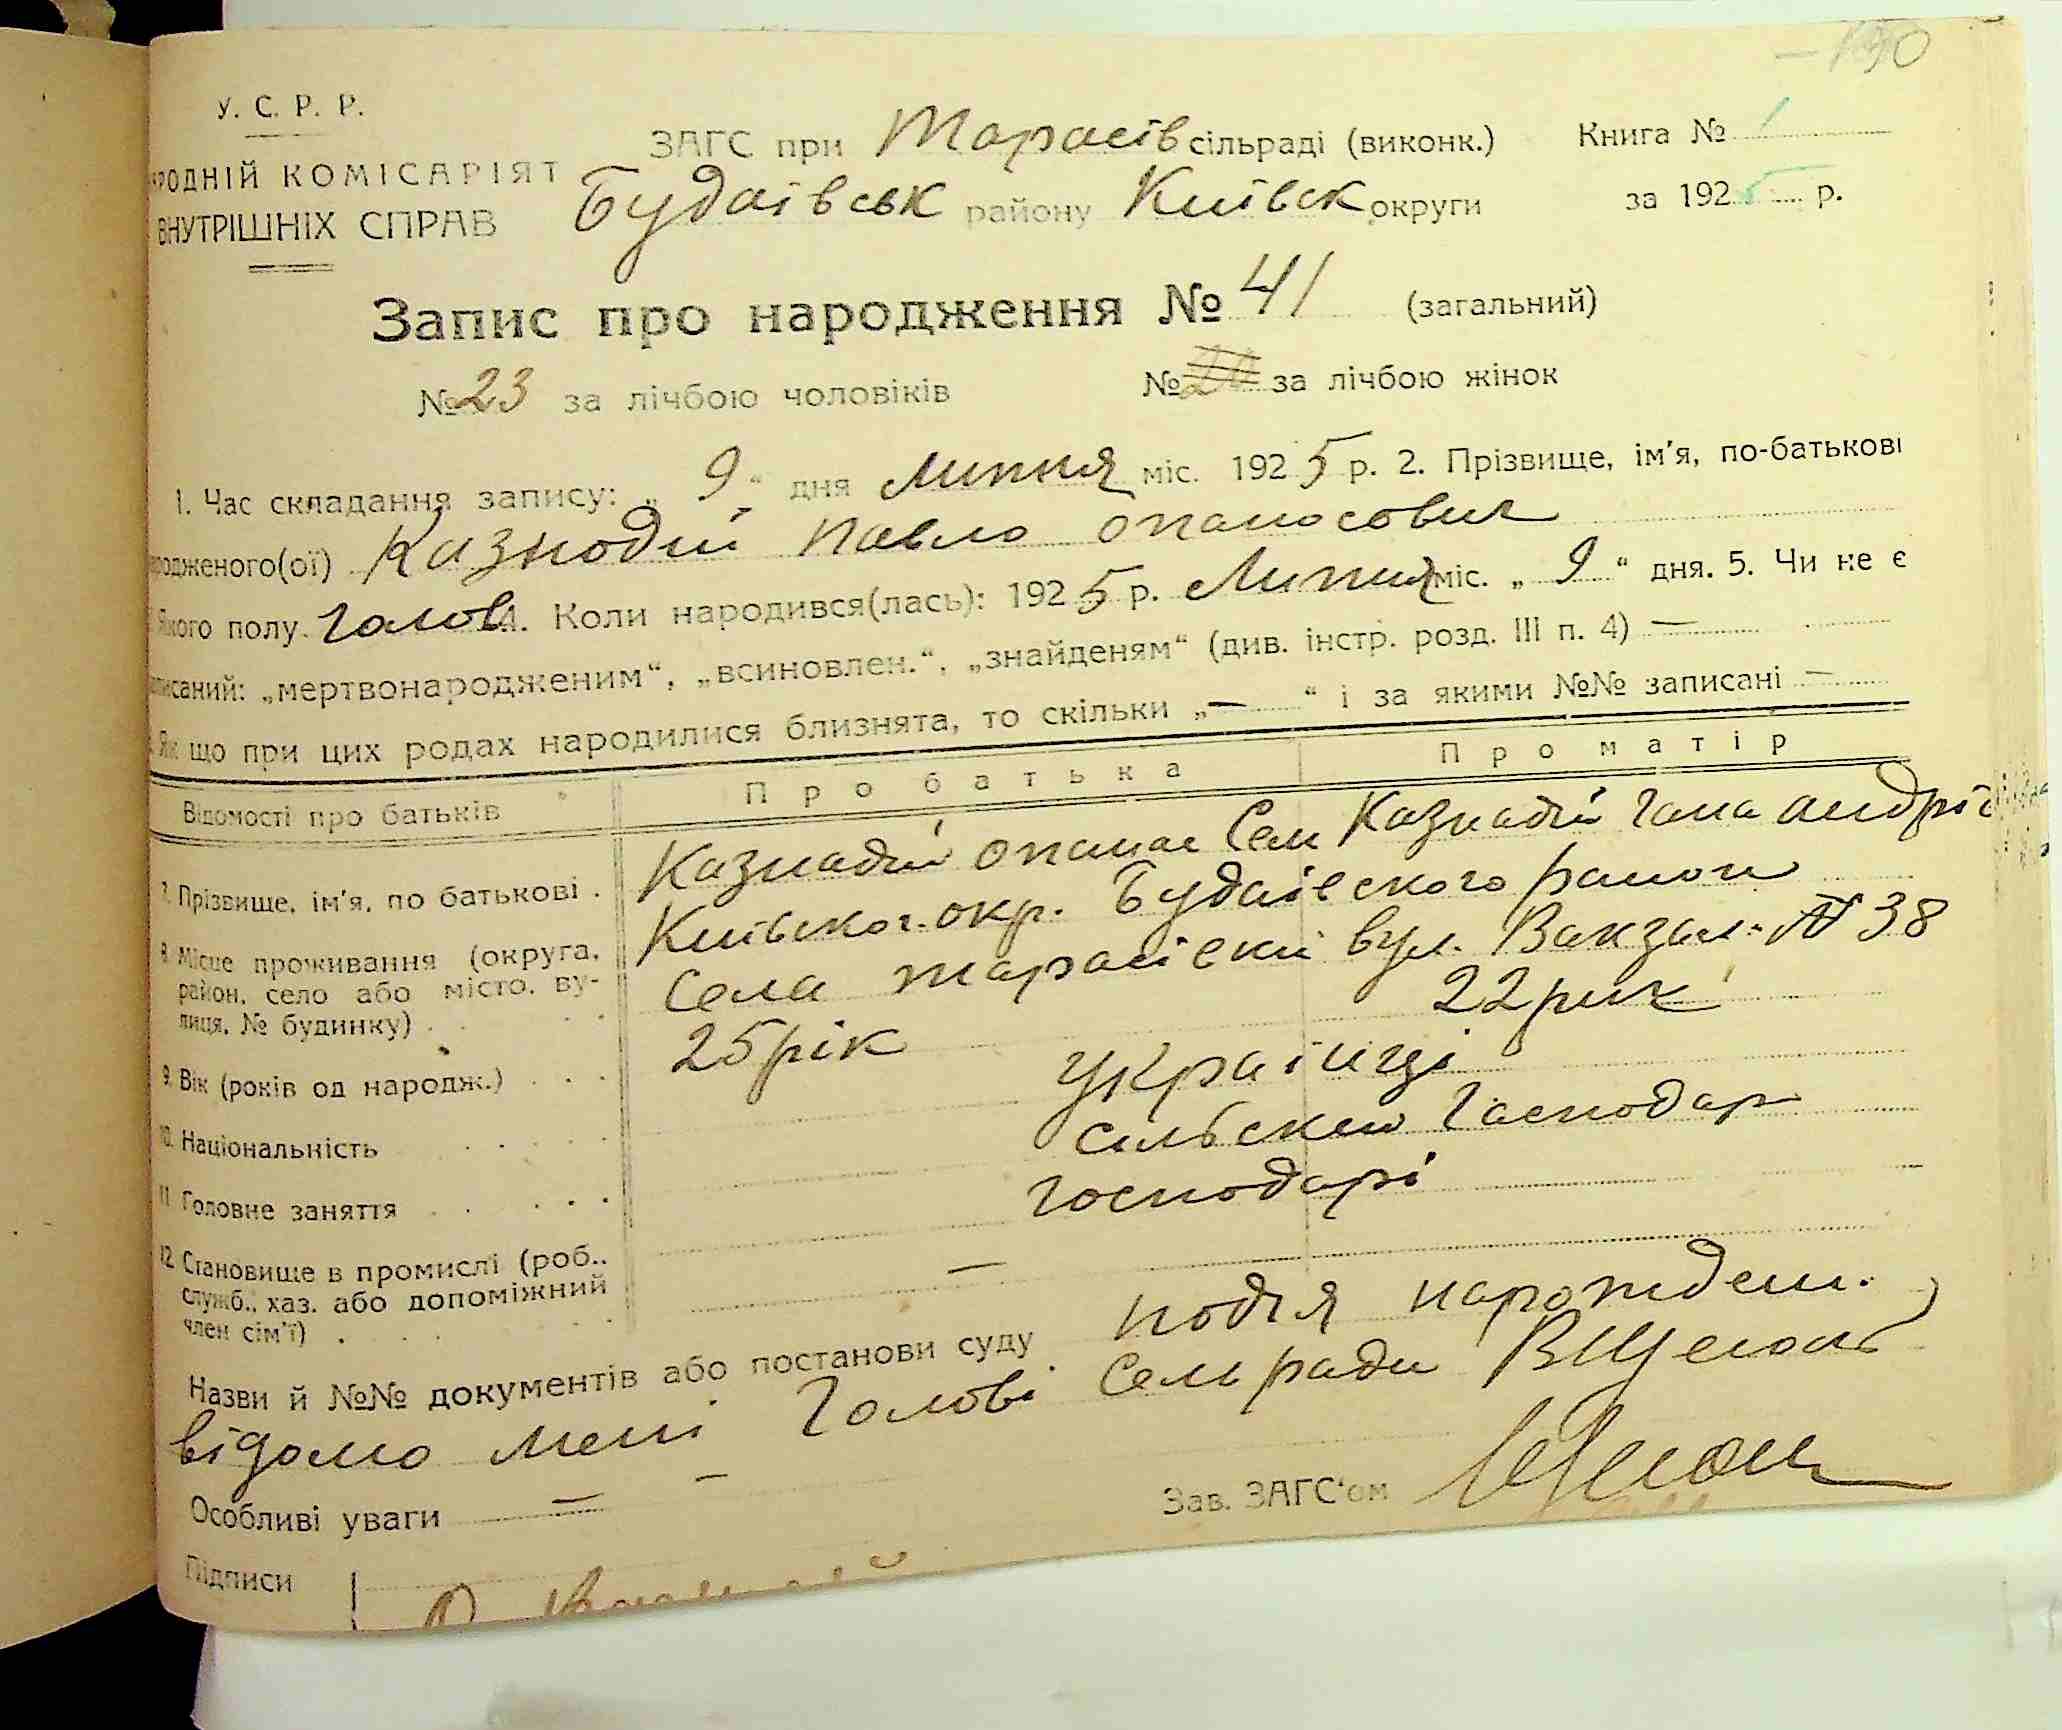 190
У. С. Р. Р.
РОДНІЙ КОМІСАРІЯТ
ВНУТРІШНІХ СПРАВ
ЗАГС при Тарасів сільраді (виконк.)
Будаївськ району Київськ округи
Книга № 1
за 1925 р.
Запис про народження № 41 (загальний)
№ 23 за лічбою чоловіків № за лічбою жінок
1. Час складання запису: „ 9 “ дня Липня міс. 1925 р. 2. Прізвище, ім'я, по-батькові
родженого(ої) Казнодій Павло Опанасович
якого полу Голов 4. Коли народився(лась): 1925 р. Липня міс. „ 9 “ дня. 5. Чи не є
писаний: „мертвонародженим“, „всиновлен.“, „знайденям“ (див. інстр. розд. III п. 4) —
Як що при цих родах народилися близнята, то скільки „ — “ і за якими №№ записані —
Відомості про батьків Про батька Про матір
7. Прізвище, ім'я, по батькові . Казнадій Опанас Сем Казнадій Гана Андріє
8. Місце проживання (округа, Київської окр. Будаївского району
район, село або місто, ву- Села Тарасівки вул. Вокзал. № 38
лиця, № будинку)
9. Вік (років од народж.) 25 рік 22 рік
10. Національність Українці
11. Головне заняття Сільскеи Господар
12. Становище в промислі (роб., Господарі
служб., хаз. або допоміжний
член сім'ї) —
Назви й №№ документів або постанови суду . Подія народжден.
відомо мені Голові Сельради
Особливі уваги —
Зав. ЗАГС'ом
Підписи